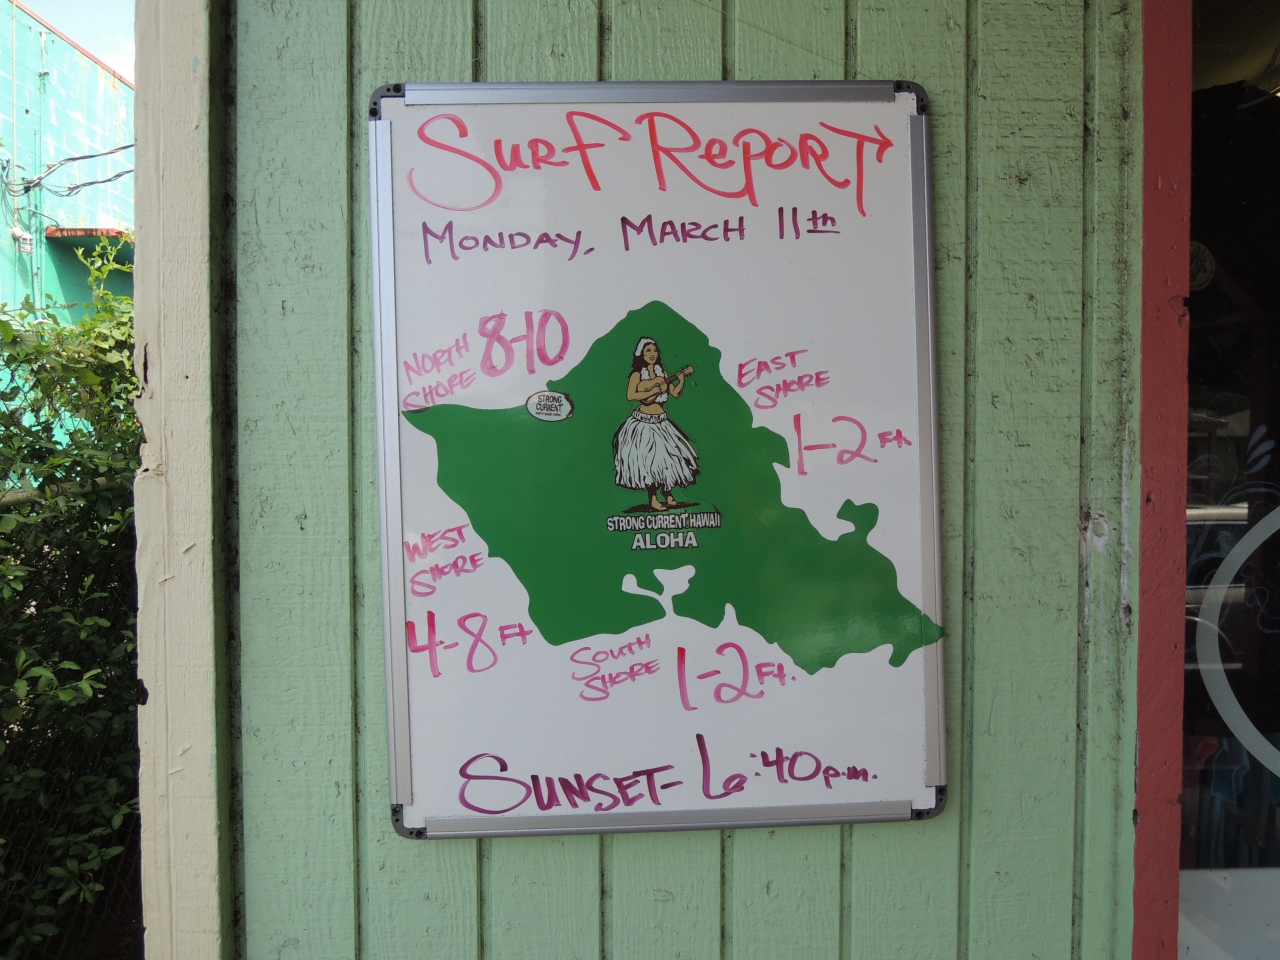 SURF REPORT
MONDAY, MARCH 11th
NORTH SHORE 8-10
EAST SHORE
1-2 Ft.
STRONG
CURRENT
STRONG CURRENT HAWAII
ALOHA
WEST SHORE
4-8 Ft
SOUTH SHORE 1-2 Ft.
SUNSET- 6:40 p.m.